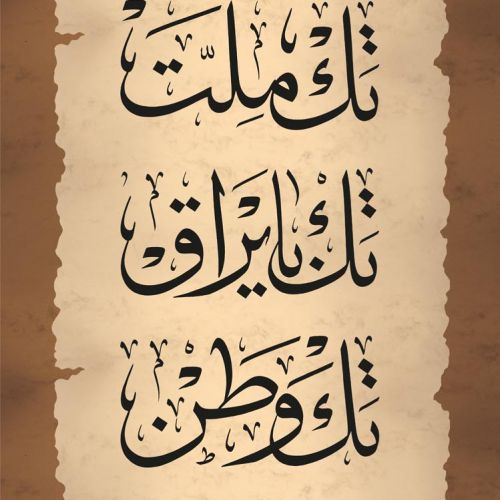 تك ملّت
تك بايراق
تك وطن